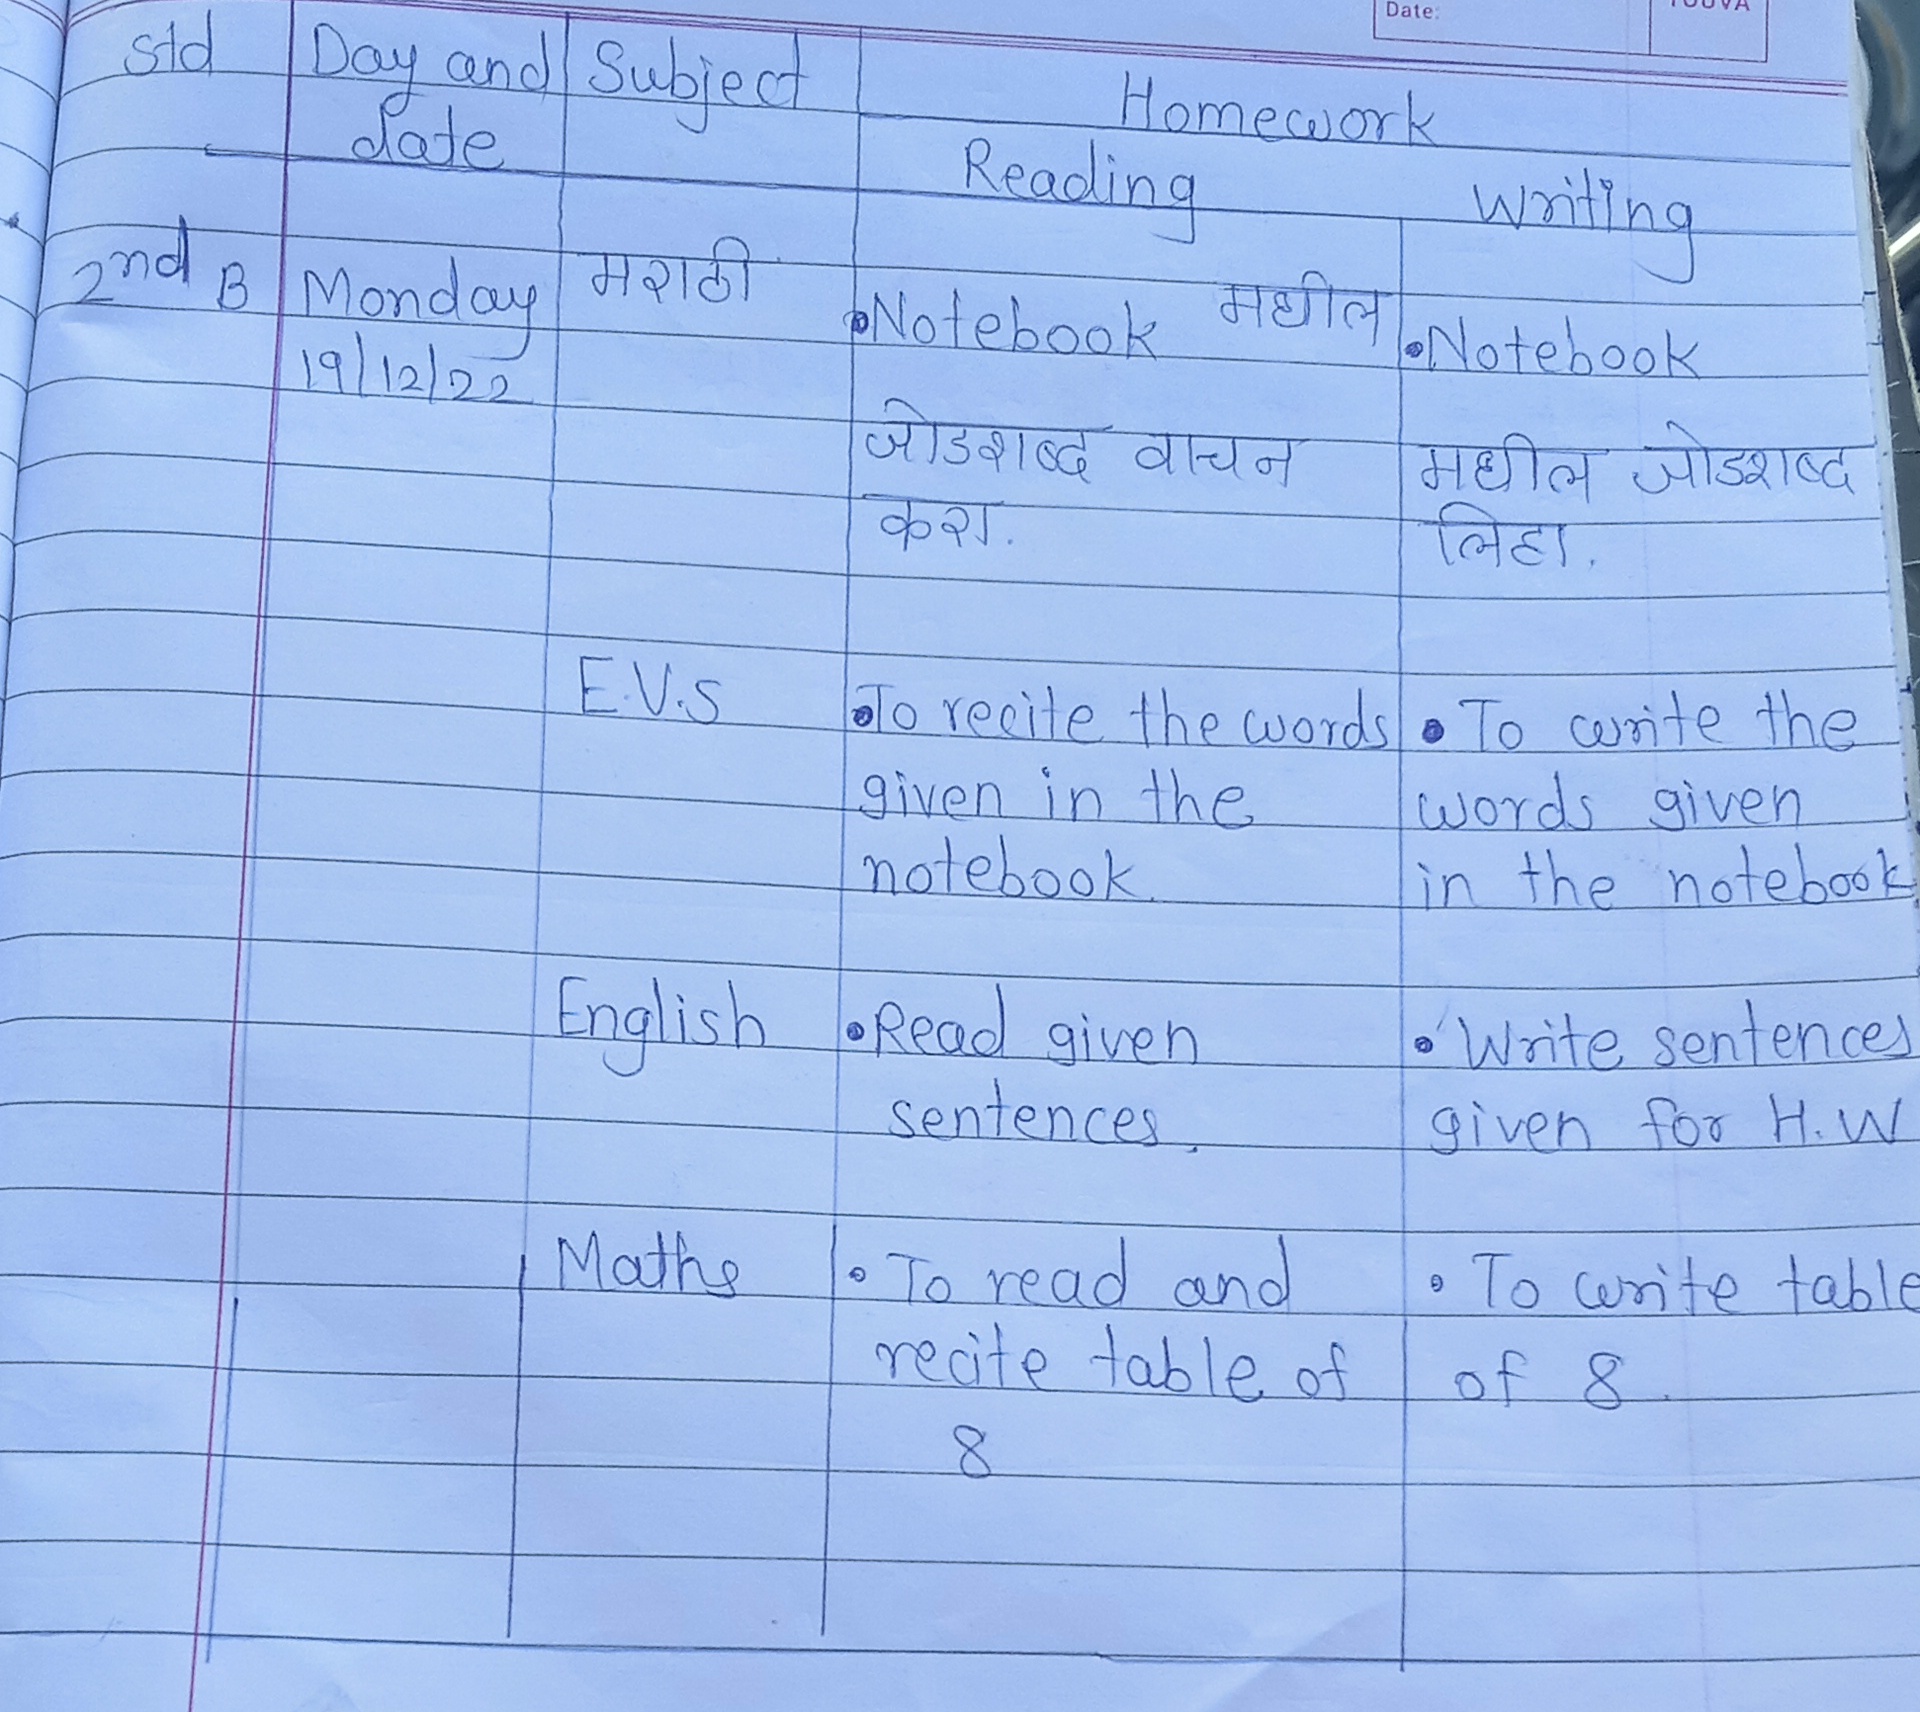 Date:
YOUVA
Std | Day and date | Subject | Homework
Reading | Writing
2nd B | Monday | मराठी | •Notebook मधील | •Notebook
19/12/22
जोडशब्द वाचन | मधील जोडशब्द
करा. | लिहा.
E.V.S | •To recite the words | • To write the
given in the | words given
notebook. | in the notebook
English | •Read given | • Write sentences
sentences. | given for H.W
Maths | • To read and | • To write table
recite table of | of 8.
8